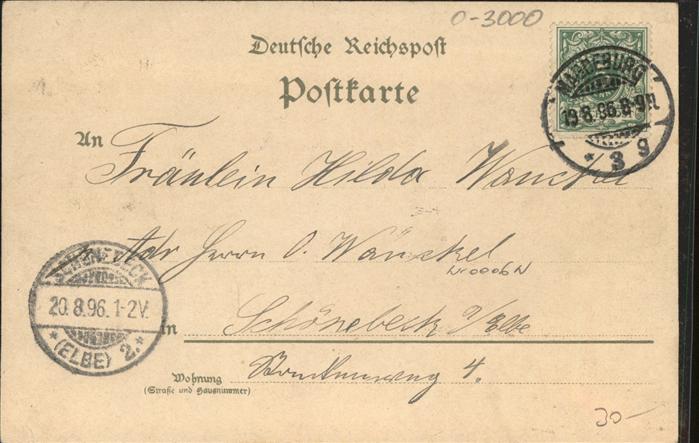 0-3000
Deutsche Reichspost
Postkarte
MAGDEBURG
19.8.96.8-9N.
* 3 g
An Fräulein Hilda Wänckel
Adr Herrn O. Wänckel
SCHÖNEBECK
20.8.96.1-2V.
* (ELBE) 2. *
in Schönebeck a/Elbe
Wohnung 4.
(Straße und Hausnummer)
30-